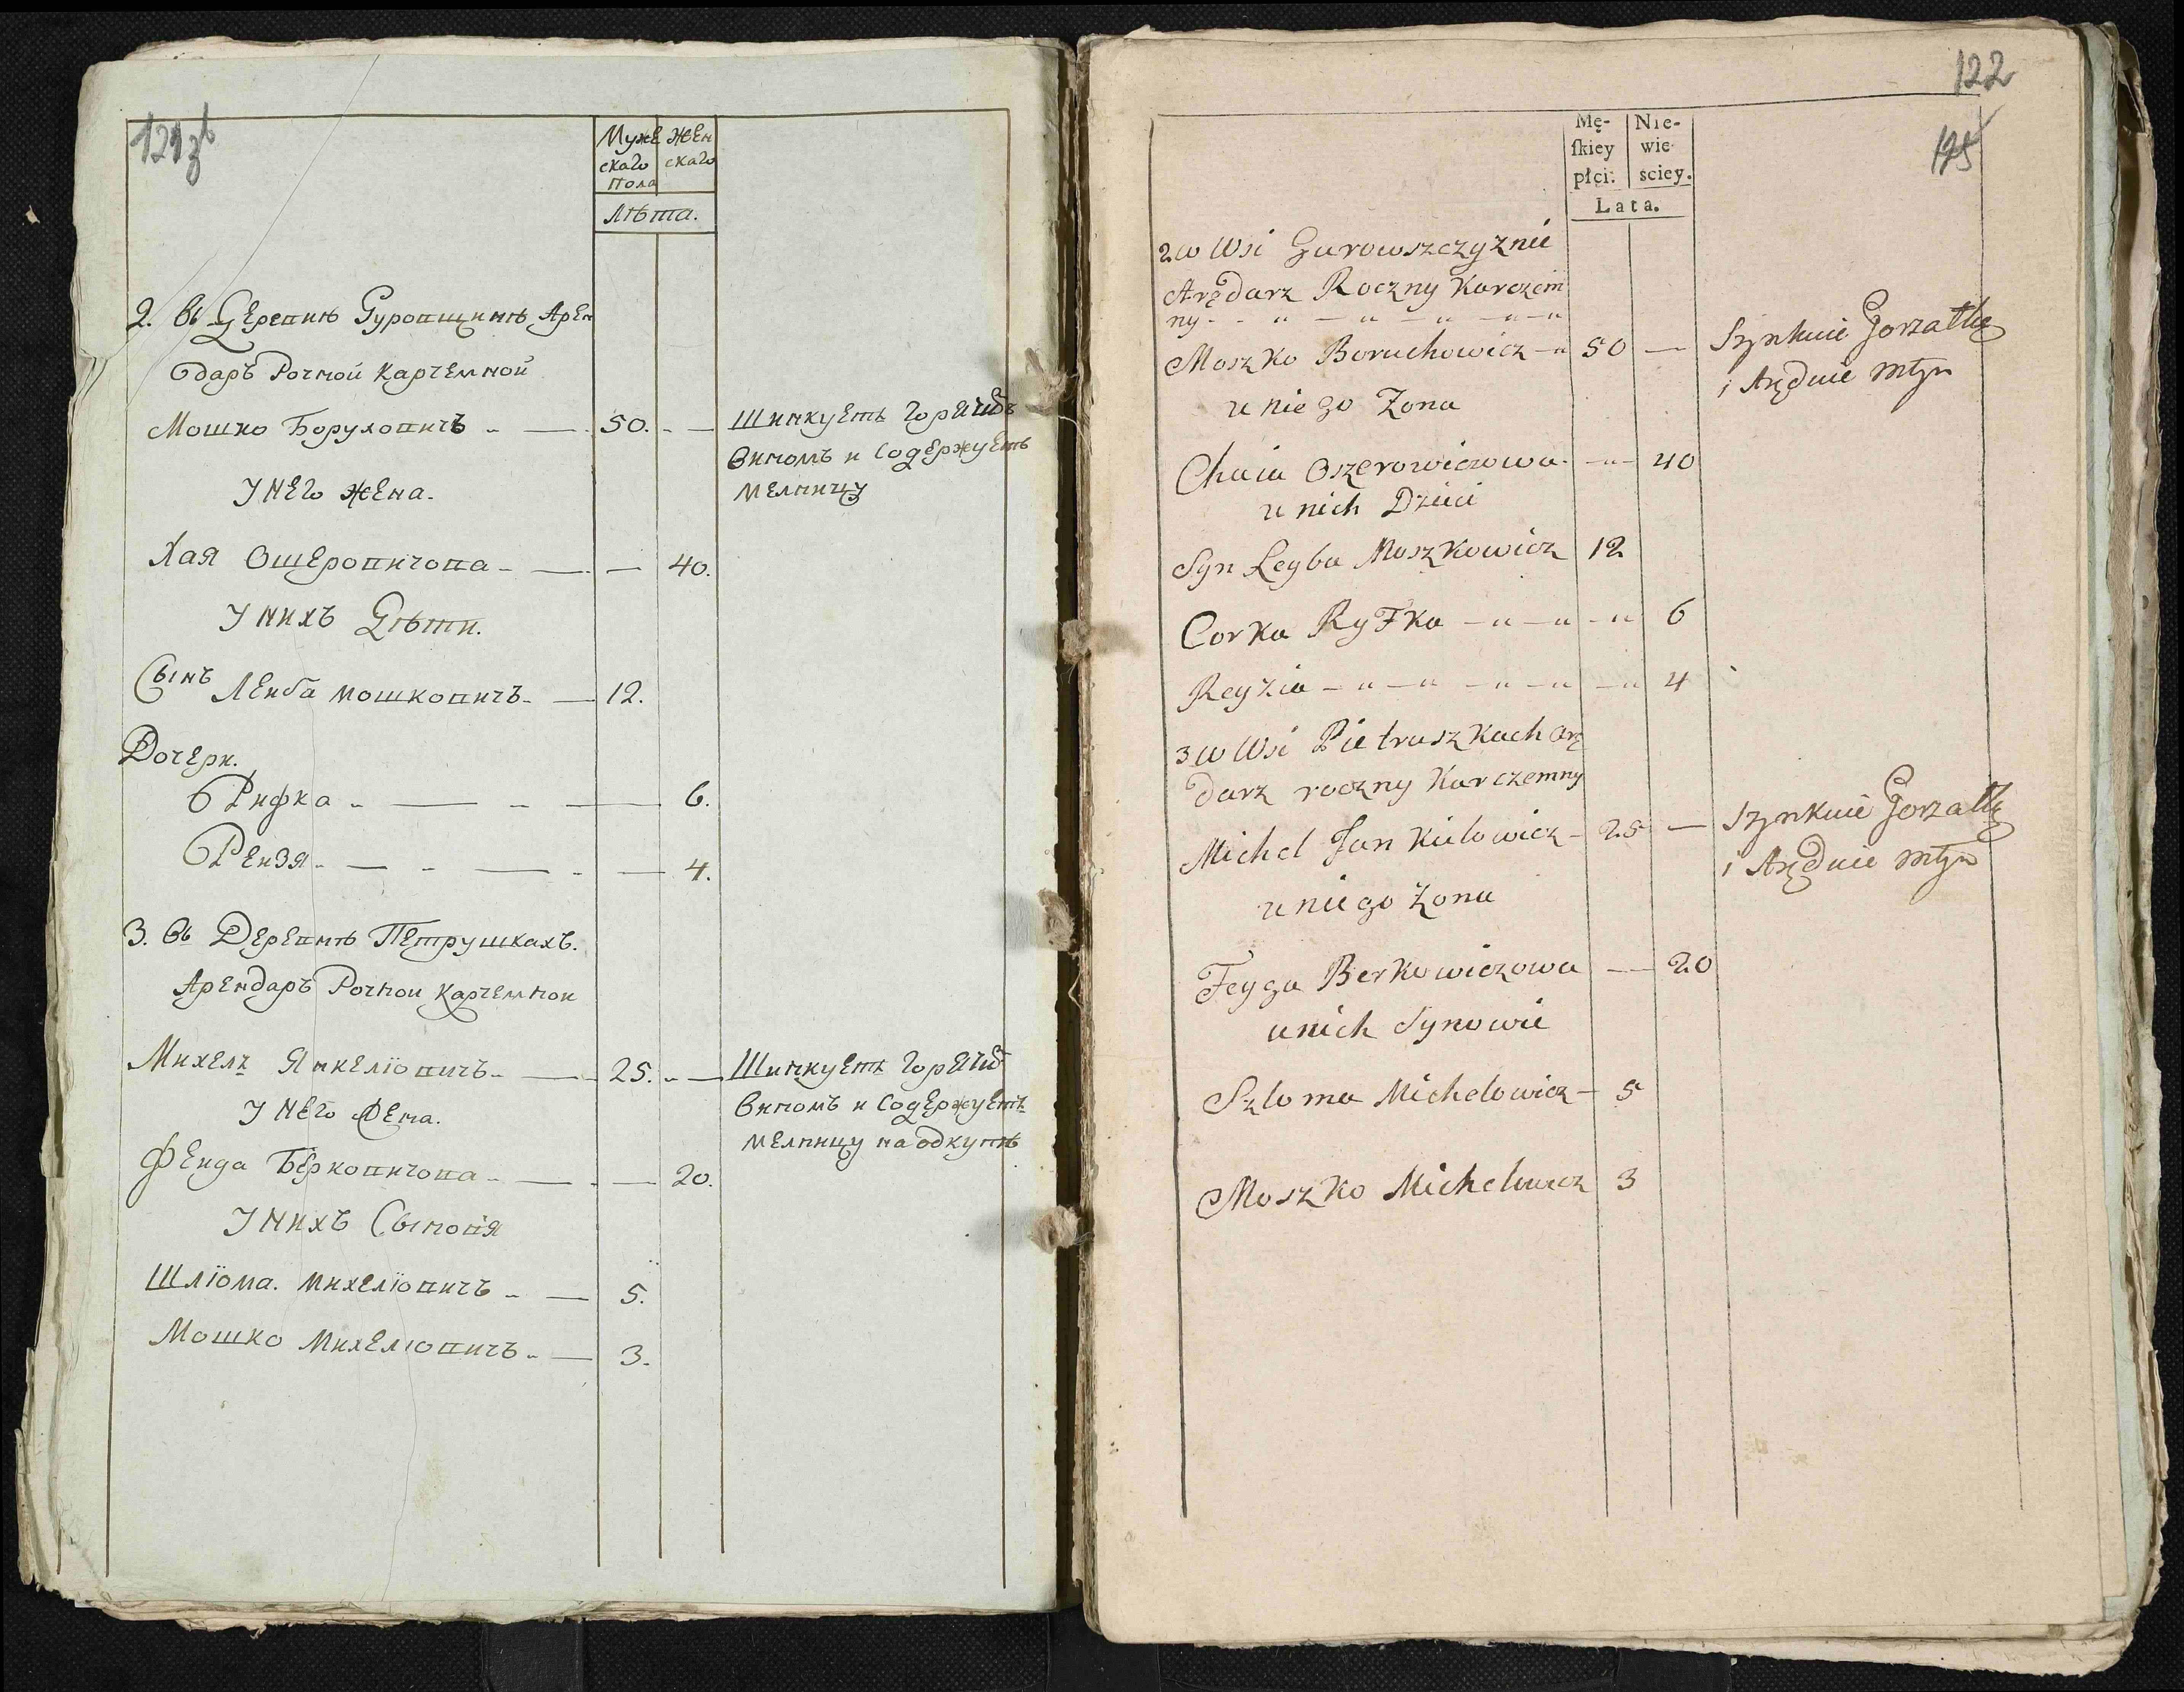 121 зв
Муже
скаго
пола
Жен
скаго
Лѣта.
2. въ Деревнѣ Гуровщинѣ Арен
даръ Рочной карчемной
Мошко Боруховичъ 50.
Шинкуетъ горячимъ
виномъ и содержуетъ
мелницу
У него жена.
Хая Ошеровичова 40.
У нихъ Дѣти.
Сынъ Лейба мошковичъ 12.
Дочери.
Рифка 6.
Рейзя 4.
3. въ Деревнѣ Петрушкахъ.
Арендаръ Рочнои карчемнои
Михель Янкелїовичъ 25.
Шинкуетъ горячим
виномъ и содержуетъ
мелницу на одкупѣ
У него Жена.
Фейга Берковичова 20.
У нихъ Сыновїя
Шлїома. михелїовичъ 5.
Мошко михелїовичъ 3.
122
125
Mę-
ſkiey
płci.
Nie-
wie-
ściey.
Lata.
2 w Wsi Gurowszczyznie
Arędarz Roczny Karczem
ny
Moszko Boruchowicz 50
Szynkuie Gorzałkę
i Aręduie młyn
u niego Zona
Chaia Oszerowiczowa 40
u nich Dzieci
Syn Leyba Moszkowicz 12
Corka Ryfka 6
Reyzia 4
3 w Wsi Pietruszkach Arę
darz roczny Karczemny
Michel Jankielowicz 25
Szynkuie Gorzałkę
i Aręduie młyn
u niego Zona
Feyga Berkowiczowa 20
u nich Synowie
Szloma Michelowicz 5
Moszko Michelowicz 3